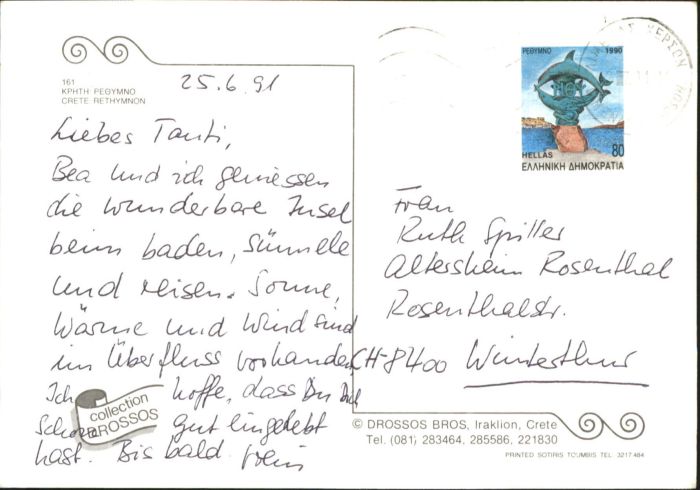 161
ΚΡΗΤΗ ΡΕΘΥΜΝΟ
CRETE RETHYMNON
25.6.91
Liebes Tanti,
Bea und ich geniessen
die wunderbare Insel
beim baden, sünnele
und reisen. Sonne,
Wärme und Wind sind
im Überfluss vorhanden.
Ich hoffe, dass Du Dich
schon gut eingelebt
hast. Bis bald.
collection
DROSSOS
ΡΕΘΥΜΝΟ 1990
HELLAS 80
ΕΛΛΗΝΙΚΗ ΔΗΜΟΚΡΑΤΙΑ
Frau
Ruth Spiller
Altersheim Rosenthal
Rosenthalstr.
CH-8400 Winterthur
© DROSSOS BROS, Iraklion, Crete
Tel. (081) 283464, 285586, 221830
PRINTED SOTIRIS TOUMBIS TEL: 3217 484